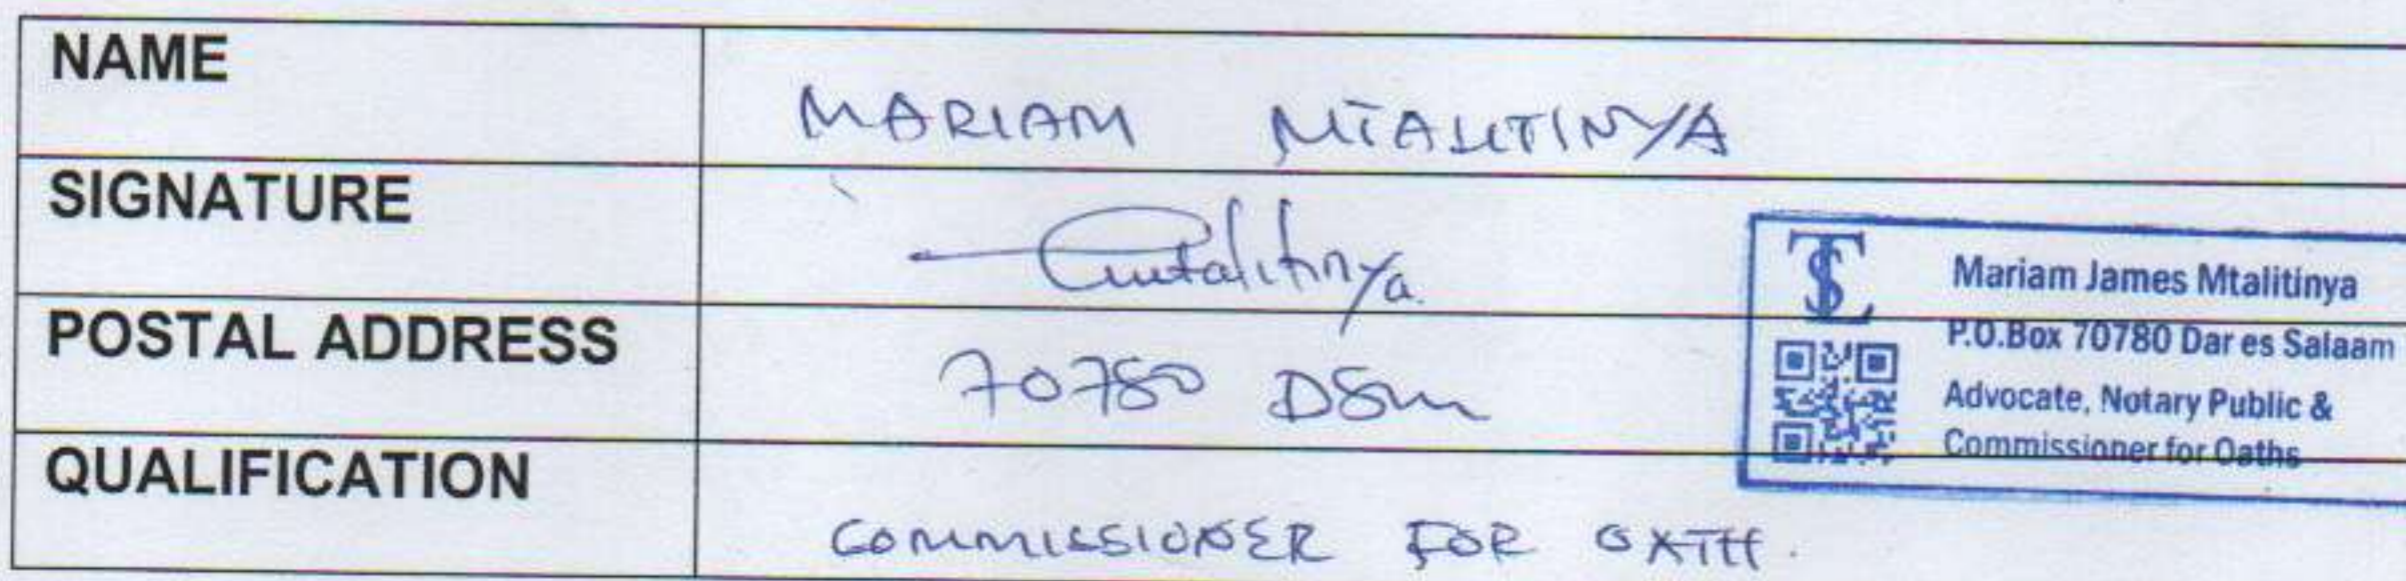 NAME
MARIAM MTALITINYA
SIGNATURE
Mtalitinya
POSTAL ADDRESS
70780 DSm
QUALIFICATION
COMMISSIONER FOR OATH.
TSL
Mariam James Mtalitinya
P.O.Box 70780 Dar es Salaam
Advocate, Notary Public &
Commissioner for Oaths